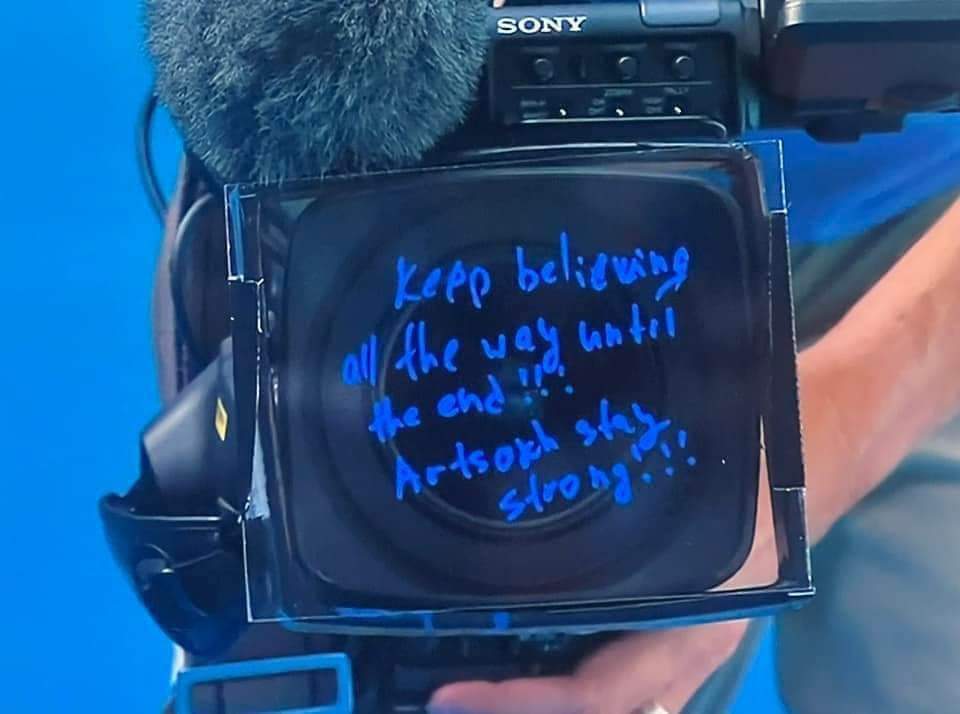 SONY
Kepp believing
all the way until
the end!!!
Artsokh stay
strong!!!